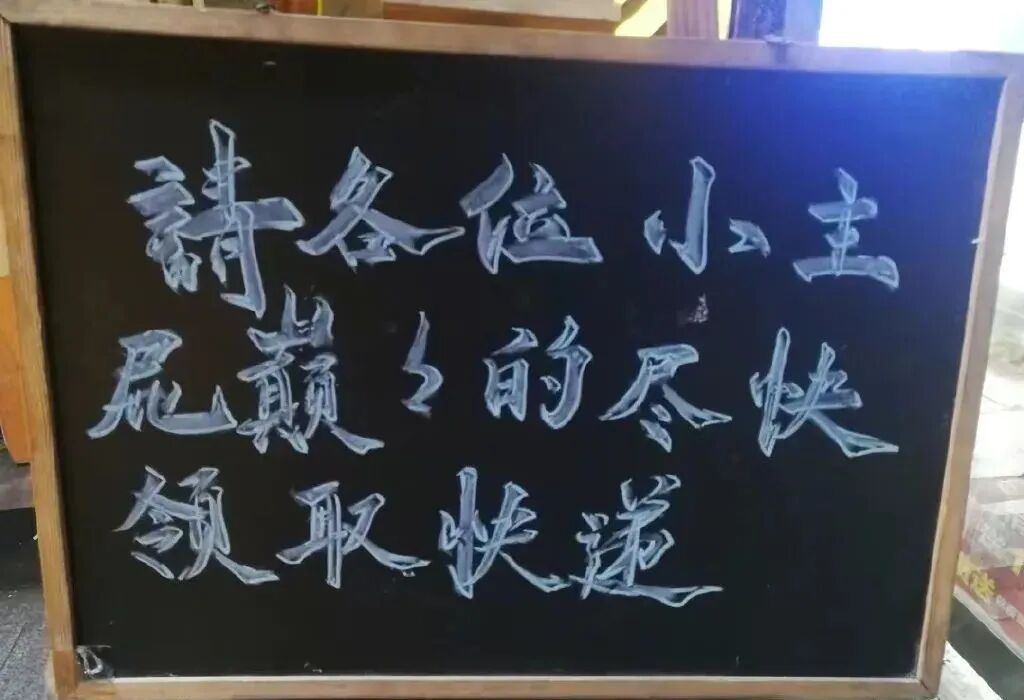 請各位小主
屁巅〻的尽快
领取快递